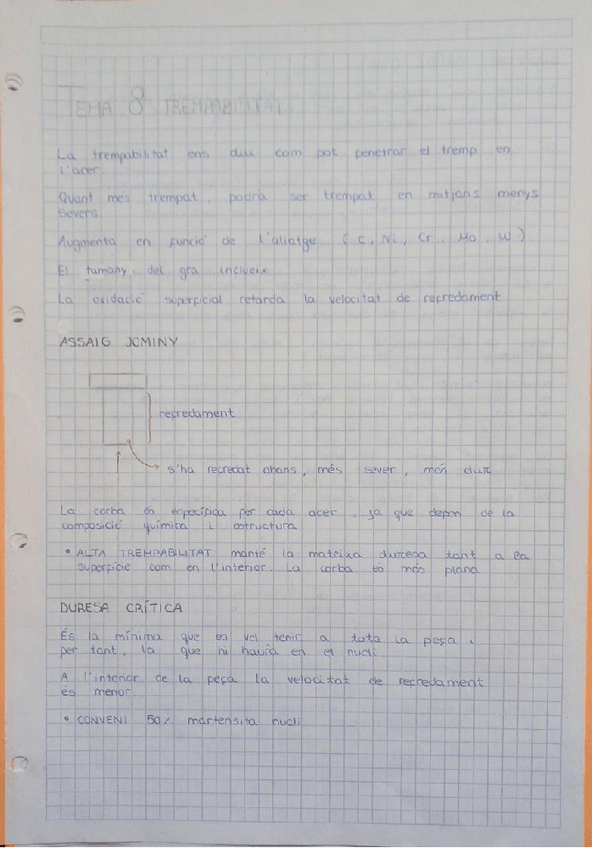 TEMA 8 TREMPABILITAT
La trempabilitat ens diu com pot penetrar el tremp en
l'acer.
Quant més trempat, podrà ser trempat en mitjans menys
severs.
Augmenta en funció de l'aliatge (C, Ni, Cr, Mo, W)
El tamany del gra inclueix
La oxidació superficial retarda la velocitat de refredament
ASSAIG JOMINY
refredament
s'ha refredat abans, més sever, més dur
La corba és específica per cada acer, ja que depèn de la
composició química i estructura
• ALTA TREMPABILITAT: manté la mateixa duresa tant a la
superfície com en l'interior. La corba és més plana
DURESA CRÍTICA
És la mínima que es vol tenir a tota la peça i
per tant, la que hi havia en el nucli
A l'interior de la peça la velocitat de refredament
és menor.
• CONVENI 50% martensita nucli